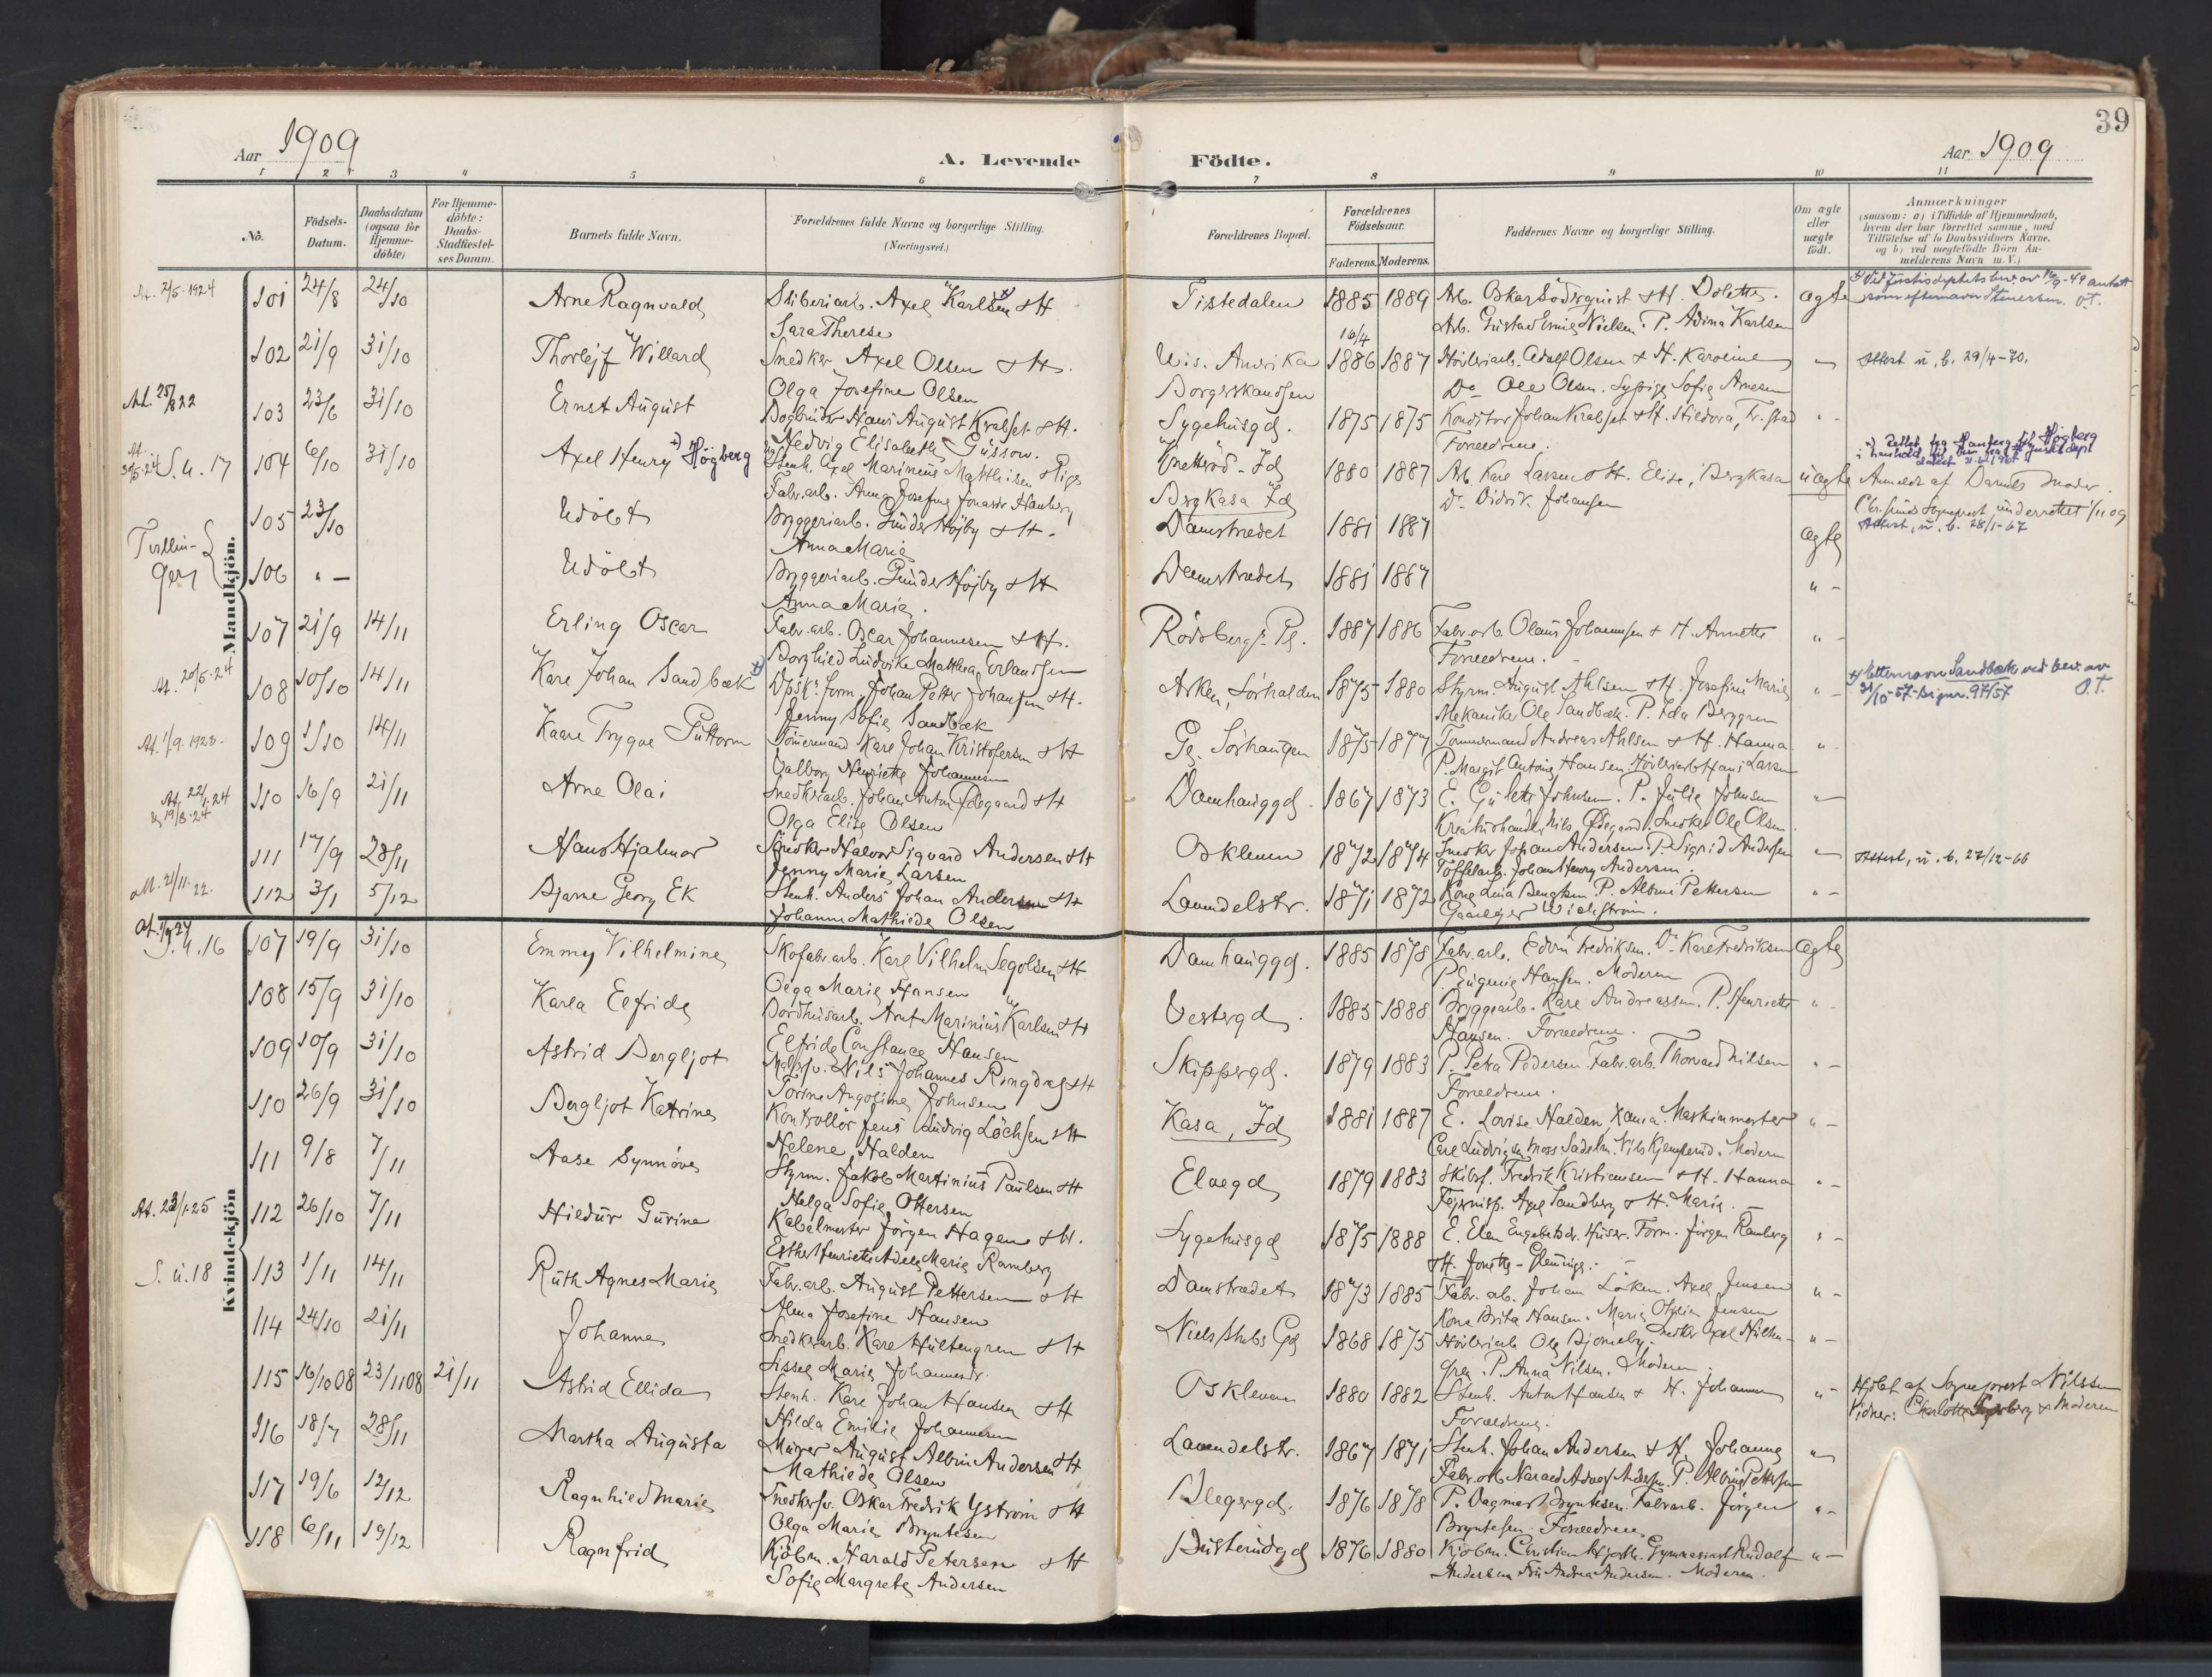 39
Aar 1909
A. Levende Födte.
Aar 1909
1 2 3 4 5 6 7 8 9 10 11
No.
Födsels-Datum.
Daabsdatum (ogsaa for Hjemmedöbte)
For Hjemmedöbte: Daabs-Stadfæstelses Datum.
Barnets fulde Navn.
Forældrenes fulde Navne og borgerlige Stilling. (Næringsvei.)
Forældrenes Bopæl.
Forældrenes Födselsaar.
Faderens. Moderens.
Faddernes Navne og borgerlige Stilling.
Om ægte eller uægte födt.
Anmærkninger
(saasom: a) i Tilfælde af Hjemmedaab,
hvem der har forrettet samme, med
Tilföielse af to Daabsvidners Navne,
og b) ved uægtefödte Börn Anmelderens Navn m. V.)
Mandkjön.
At. 2/5-1924 101 24/8 24/10 Arne Ragnvald Sliberiarb. Axel Karlsen & H. Tistedalen 1885 1889 Arb. Oskar Söderquist & H. Dolette. ægte
Sara Therese Arb. Gustav Emil Nielsen. P. Adina Karlsen
som efternavn Stenersen. O.T.
16/4
102 21/9 31/10 Thorlejf Willard Snedker Axel Olsen & H. Wis. Amrika 1886 1887 Hövleriarb. Adolf Olsen & H. Karoline " Attest u. b. 29/4-70.
Olga Josefine Olsen Do Ole Olsen. Sypige Sofie Arnesen
At. 25/8 22 103 23/6 31/10 Ernst August Bogbinder Hans August Kralset & H. Sygehusgd. 1875 1875 Konditor Johan Kralset & H. Hildora, Fr.stad " -
Hedvig Elisabeth Güssow. Forældrene.
S. u. 17 104 6/10 31/10 Axel Henry +) Högberg Stenh. Axel Marinius Mathisen & Pige Knatteröd - Id 1880 1887 Arb. Karl Larsen & H. Elise, Bergkasa uægte Anmeldt af Barnets Moder.
Fabr.arb. Anna Josefine Jonasdr Hanberg Bergkasa Id Do Didrik Johansen
Tvillinger 105 23/10 Udöbt Bryggeriarb. Gunder Højby & H. Damstrædet 1881 1887 ægte Attest, u. b. 28/1-67
Anna Marie
106 " - Udöbt Bryggeriarb. Gunder Højby & H Damstrædet 1881 1887 " -
Anna Marie.
107 21/9 14/11 Erling Oscar Fabr.arb. Oscar Johannesen & H. Rödsberg Pl. 1887 1886 Fabr.arb. Olaus Johannsen & H. Annette " -
Borghild Ludvika Mathea Erlandsen Forældrene.
At. 20/5-24 108 10/10 14/11 Karl Johan Sandbæk +) Dpsk. form. Johan Petter Johansen & H. Asken, Sörhalden 1875 1880 Styrm. August Ahlsen & H. Josefine Marie " - +) Etternavn Sandbæk ved bev. av
Jenny Sofie Sandbæk Mekaniker Ole Sandbæk. P. Ida Berggren 21/10-57. Bignr. 97/57 O.T.
At. 1/9. 1923. 109 1/10 14/11 Kaare Trygve Guttorm Tömmermand Karl Johan Kristofersen & H Gl. Sörhaugen 1875 1877 Tömmermand Andreas Ahlsen & H. Hanna. " -
Valborg Henriette Johannesen P. Margit Antonie Hansen. Hövleriarb Hans Larsen
At. 22/1-24 110 16/9 21/11 Arne Olai Snedkerarb. Johan Anton Ødegaard & H Damhauggd. 1867 1873 E. Gulette Johnsen. P. Julie Johnsen "
19/8-24 Olga Elise Olsen Kreaturhandler Nils Ødegaard. Snedker Ole Olsen.
111 17/9 28/11 Hans Hjalmar Snedker Halvor Sigvard Andersen & H Osklenn 1872 1874 Snedker Johan Andersen. P. Sigrid Andersen " Attest, u. b. 27/12-66
Jenny Marie Larsen Töffelarb. Johan Henry Andersen.
Att. 21/11. 22. 112 3/1 5/12 Bjarne Georg Ek Stenh. Anders Johan Andersen & H Lavendelstr. 1871 1872 Kone Lina Bengtsen. P. Albine Pettersen " -
Johanne Mathilde Olsen
Kvindekjön
S. u. 16 107 19/9 31/10 Emmy Vilhelmine Skofabr.arb. Karl Vilhelm Segolsen & H Damhauggd. 1885 1878 Fabr.arb. Edvin Fredriksen. Do Karl Fredriksen ægte
Olga Marie Hansen P. Eugenie Hansen. Moderen
108 15/9 31/10 Karla Elfride Bordhusarb. Arnt Marinius Karlsen & H Vestergd. 1885 1888 Bryggearb. Karl Andreassen. P. Henriette " -
Elfride Constance Hansen Hansen. Forældrene.
109 10/9 31/10 Astrid Bergljot Malersv. Nils Johannes Ringdal & H Skippergd. 1879 1883 P. Petra Pedersen. Fabr.arb. Thorvald Nilsen " -
Torine Angoline Johnsen Forældrene.
110 26/9 31/10 Bergljot Katrine Kontrollör Jens Ludvig Löchsen & H Kasa, Id 1881 1887 E. Lovise Halden, Xania. Maskinmester " -
Helene Halden Carl Ludvigsen Moss. Sadelm. Nils Kjenperud. Moderen
111 9/8 7/11 Aase Synnöve Styrm. Jakob Martinius Paulsen & H Elvegd 1879 1883 Skibsf. Fredrik Kristiansen & H. Hanna " -
Helga Sofie Ottersen Axel Sandberg & H. Marie.
At. 23/1-25 112 26/10 7/11 Hildur Gurine Kabelmester Jörgen Hagene & H. Sygehusgd 1875 1888 E. Elen Engebretsdr. Form. Jörgen Ramberg " -
Esther Henriette Adele Marie Ramberg & H. Jonette - Glemmige.
S. u. 18 113 1/11 14/11 Ruth Agnes Marie Fabr.arb. August Pettersen & H Damstrædet 1873 1885 Fabr. arb. Johan Löken. Axel Jensen " -
Alma Josefine Hansen Kone Brita Hansen. Marie Othilie Jensen
114 24/10 21/11 Johanne Snedkerarb. Karl Hultengren & H Niels Stubs Gd 1868 1875 Hövleriarb Ole Bjørneby. Snedker Axel Hulten- " -
Sissel Marie Johannesdr. gren. P. Anna Nilsen. Moderen.
115 16/10 08 23/11 08 21/11 Astrid Ellida Stenh. Karl Johan Hansen & H Osklenn 1880 1882 Stenh. Anton Hansen & H. Johanne " - Hjdöbt af Sogneprest Nilssen
Hilda Emilie Johannesen Forældrene. Vidner: Charlotte & Moderen
116 18/7 28/11 Martha Augusta Murer August Albin Andersen & H Lavendelstr. 1867 1871 Stenh. Johan Andersen & H. Johanne "
Mathilde Olsen Fabr.arb. Harald Andersen. P. Albine Pettersen
117 19/6 12/12 Ragnhild Marie Snedkersv. Oskar Fredrik Yström & H Blegergd. 1876 1878 P. Dagmar Bryntesen. Fabr.arb. Jörgen " -
Olga Marie Bryntesen Bryntesen. Forældrene
118 6/11 19/12 Ragnfrid Kjöbm. Harald Petersen & H Busterudgd 1876 1880 Kjöbm. Christian Hjorth. Gymnasiast Rudolf " -
Sofie Margrete Andersen Andersen. Fru Andrea Andersen. Moderen.